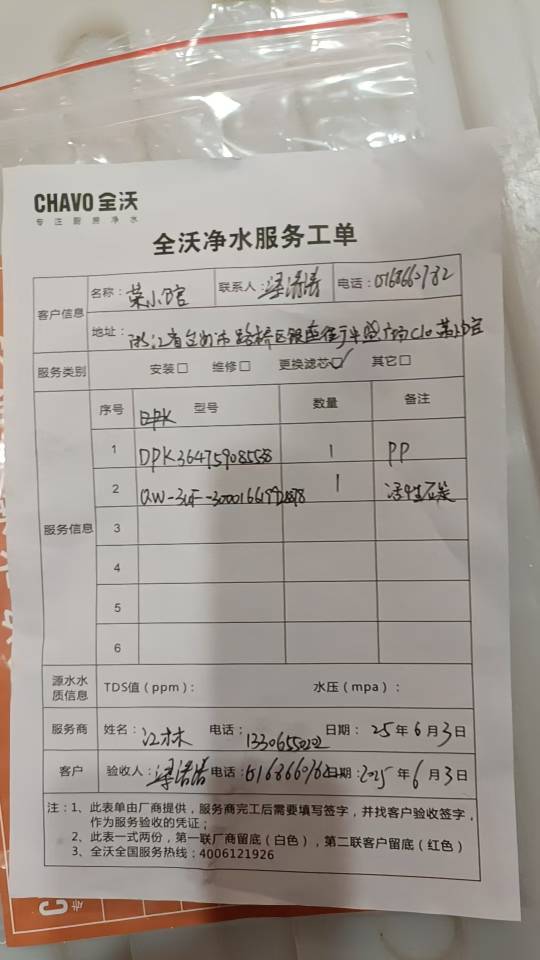 CHAVO 全沃
专注厨房净水
全沃净水服务工单
客户信息
名称：荣小馆 联系人： 电话：
地址：浙江省台州市路桥区银座街 荣小馆
服务类别 安装□ 维修□ 更换滤芯☑ 其它□
服务信息
序号 型号 数量 备注
1 DPK364759085538 1 PP
2 1 活性石炭
3
4
5
6
源水水质信息 TDS值（ppm）： 水压（mpa）：
服务商 姓名：江林 电话：13306550202 日期：25年6月3日
客户 验收人： 电话： 日期：2025年6月3日
注：1、此表单由厂商提供，服务商完工后需要填写签字，并找客户验收签字，
作为服务验收的凭证；
2、此表一式两份，第一联厂商留底（白色），第二联客户留底（红色）
3、全沃全国服务热线：4006121926